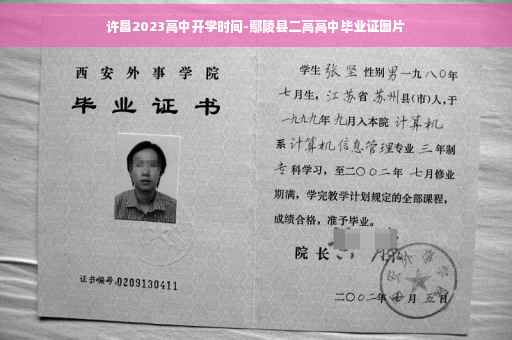 许昌2023高中开学时间-鄢陵县二高高中毕业证图片
西安外事学院
毕业证书
证书编号:0209130411
学生 张坚 性别 男 一九八〇年
七月生，江苏省 苏州县(市)人，于
一九九九年 九月入本院 计算机
系 计算机信息管理专业 三 年制
专科学习，至二〇〇二年 七月修业
期满，学完教学计划规定的全部课程，
成绩合格，准予毕业。
院长
二〇〇二年 月 五日